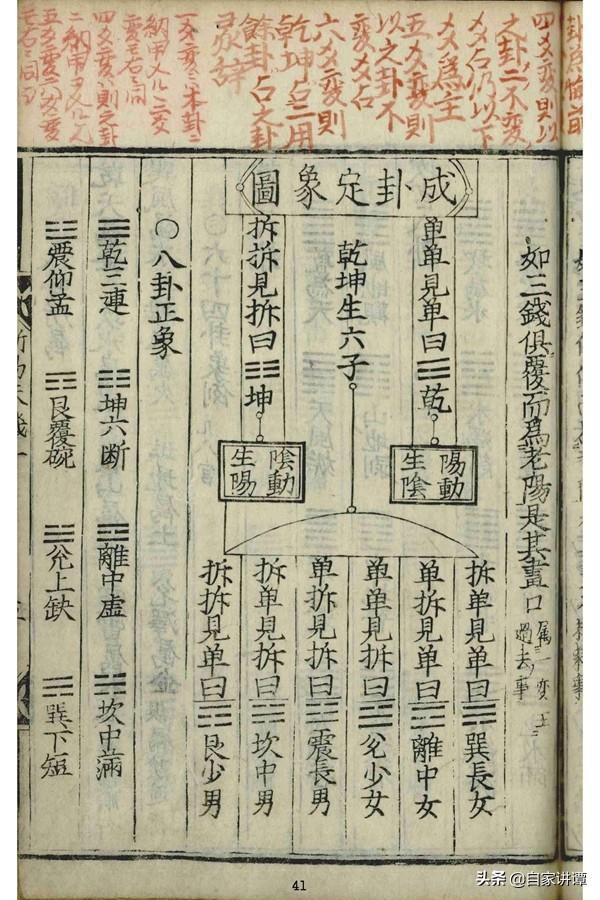 四爻變則以
之卦二不變
爻占仍以下
爻為主
五爻變則
以之卦不
變爻占
六爻變則
乾坤占二用
餘卦占之卦
彖辭
四爻變則之卦
五爻變六爻變
如三錢俱覆而為老陽是其畫口
過去事
成卦定象圖
单单見单曰☰乾
陽動生陰
乾坤生六子
拆拆見拆曰☷坤
陰動生陽
拆单見单曰☴巽長女
单拆見单曰☲離中女
单单見拆曰☱兌少女
单拆見拆曰☳震長男
拆单見拆曰☵坎中男
拆拆見单曰☶艮少男
〇八卦正象
☰乾三連 ☷坤六断 ☲離中虛 ☵坎中滿
☳震仰盂 ☶艮覆碗 ☱兌上缺 ☴巽下短
41
头条 @自家讲谭